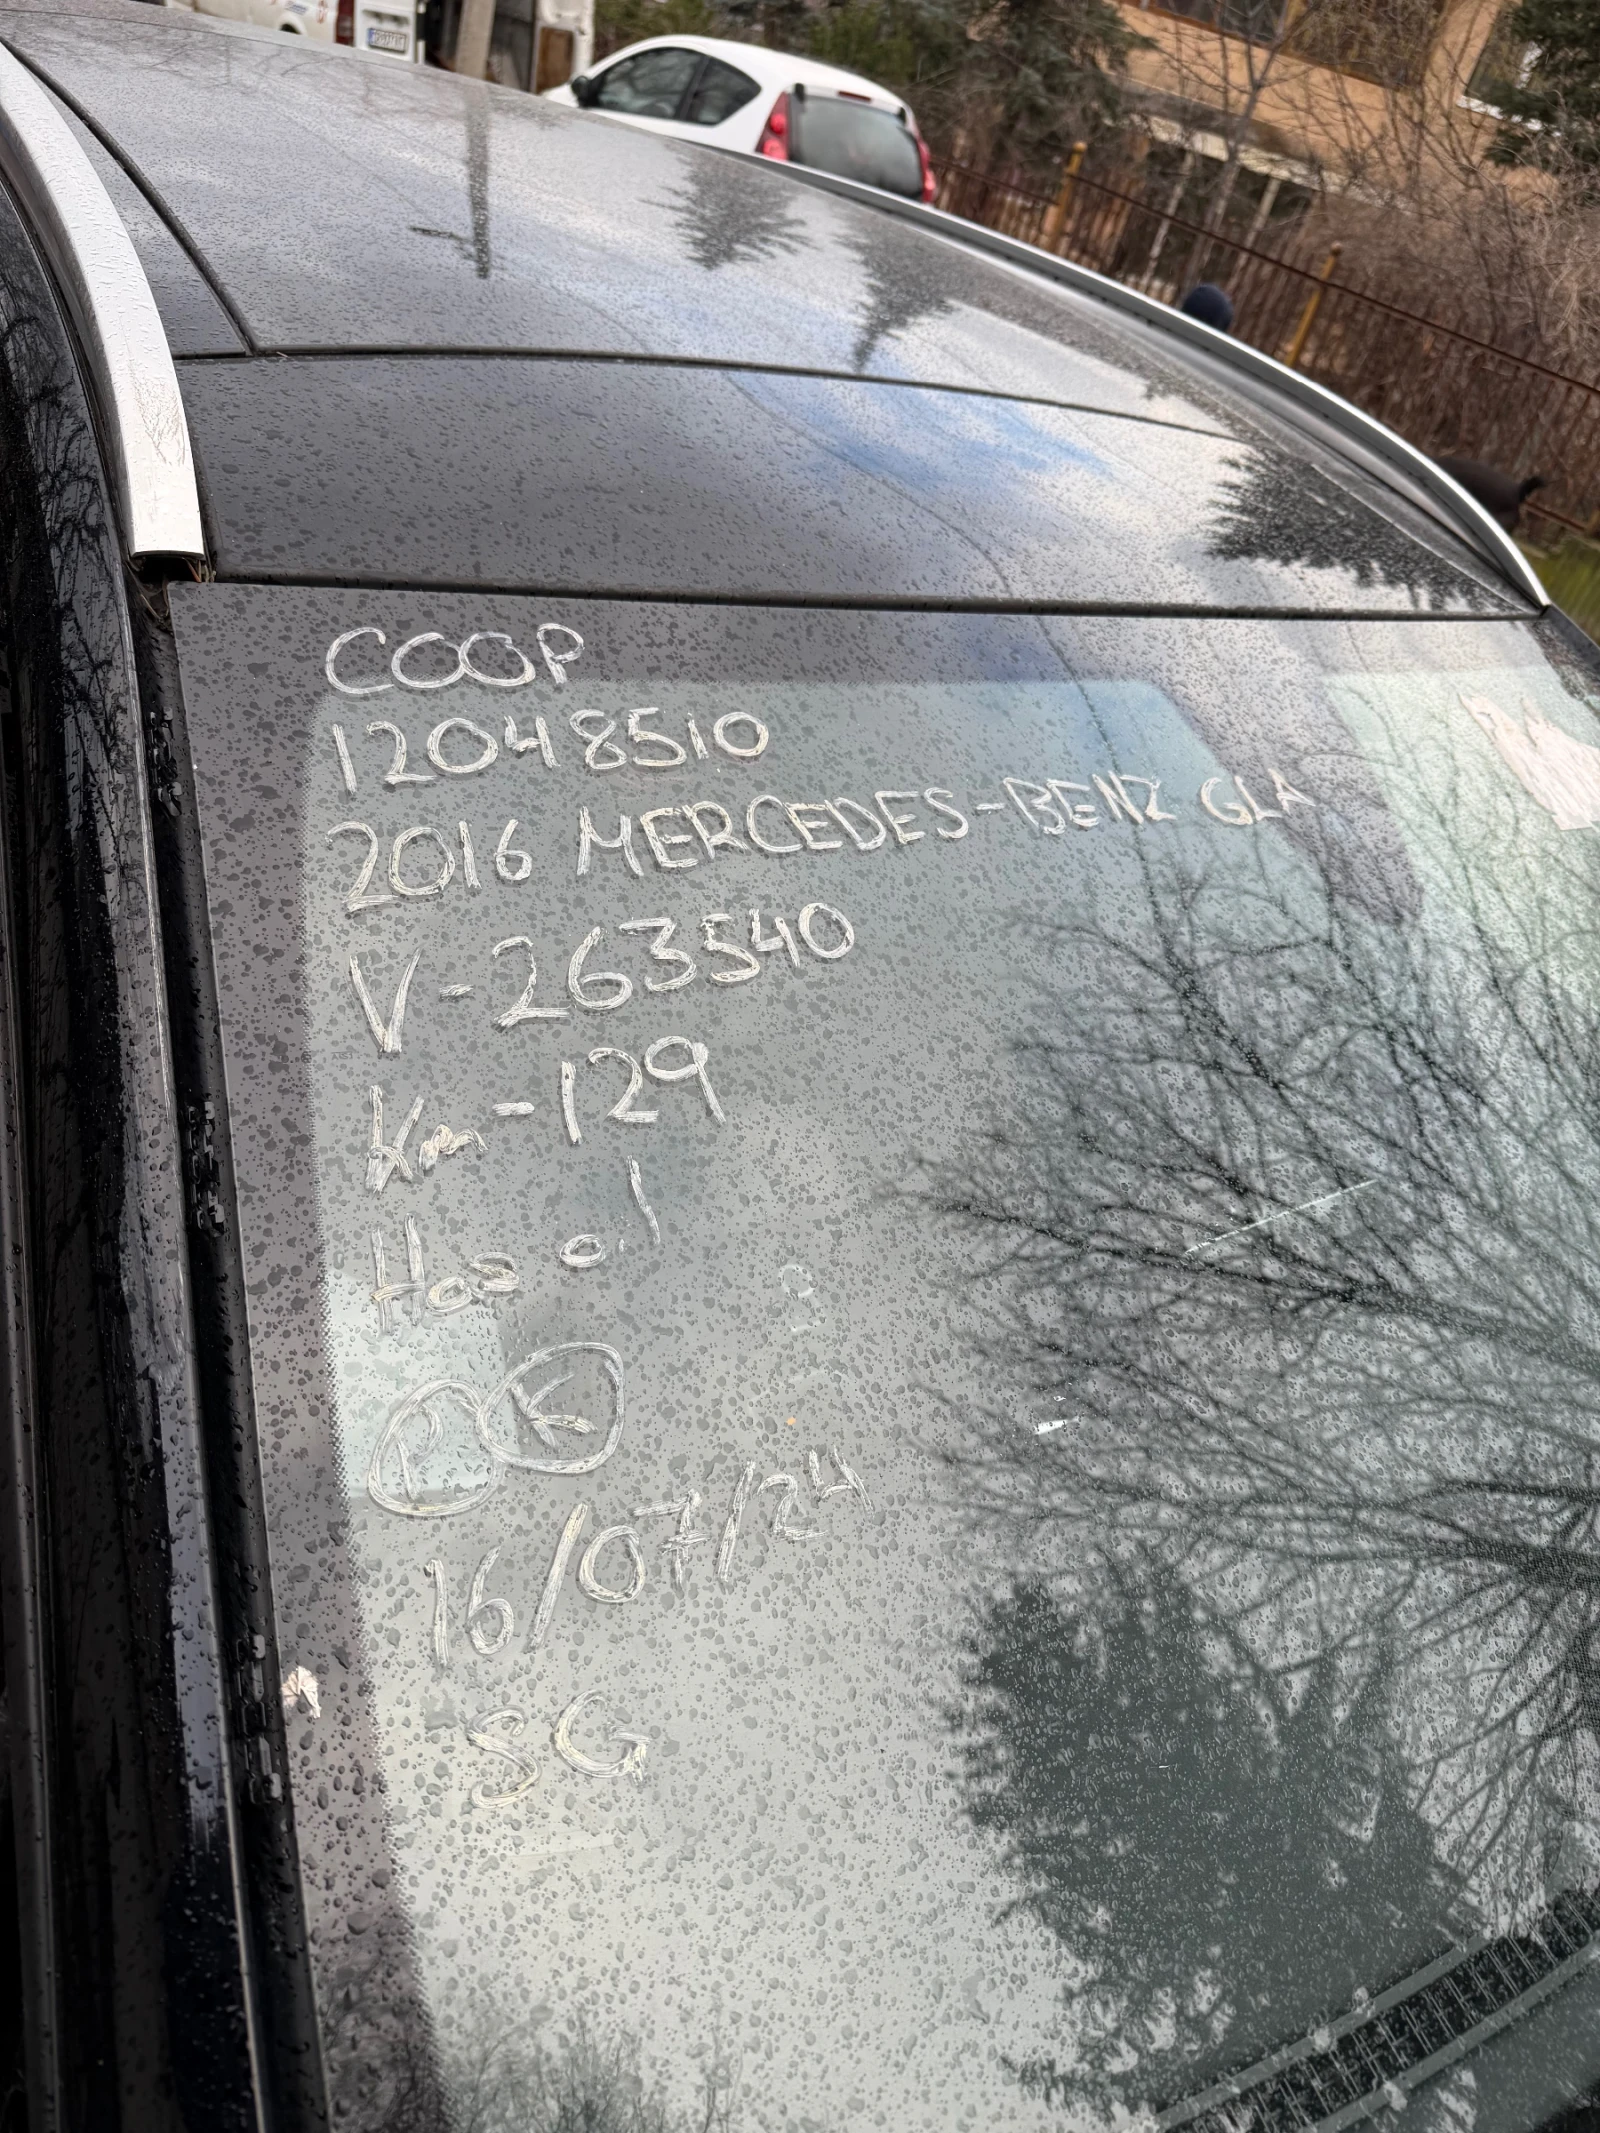 COOP
12048510
2016 MERCEDES-BENZ GLA
V-263540
Km-129
Haz 0.1
P K
16/07/24
SG